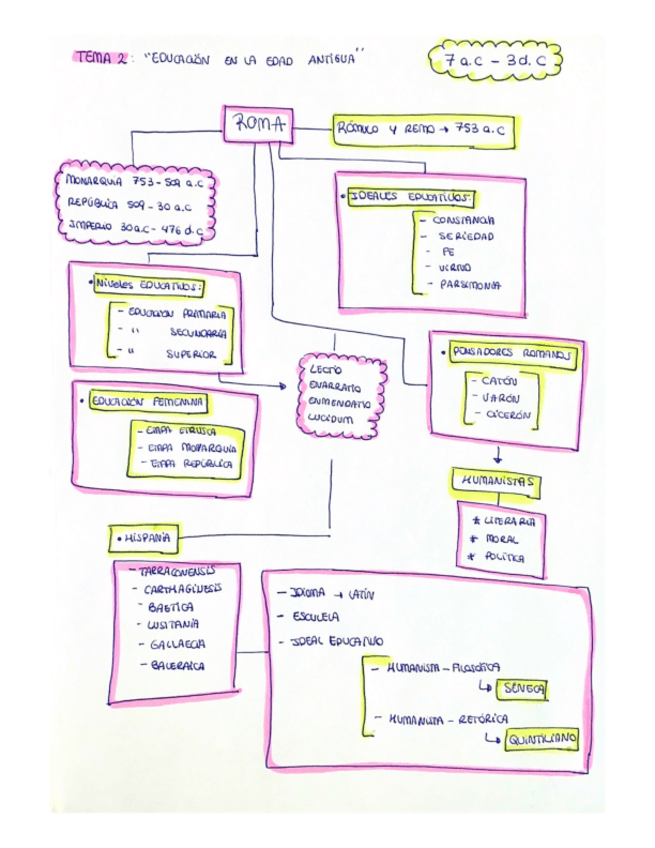 TEMA 2: "EDUCACIÓN EN LA EDAD ANTIGUA"
7 a.C - 3 d.C
ROMA
RÓMULO Y REMO → 753 a.C
MONARQUIA 753 - 509 a.C
REPÚBLICA 509 - 30 a.C
IMPERIO 30 a.C - 476 d.C
• IDEALES EDUCATIVOS:
- CONSTANCIA
- SERIEDAD
- FE
- VIRTUD
- PARSIMONIA
• NIVELES EDUCATIVOS:
- EDUCACIÓN PRIMARIA
- " SECUNDARIA
- " SUPERIOR
LECTIO
ENARRATIO
ENMENDATIO
LUCIDUM
• PENSADORES ROMANOS
- CATÓN
- VARÓN
- CICERÓN
• EDUCACIÓN FEMENINA
- ETAPA ETRUSCA
- ETAPA MONARQUÍA
- ETAPA REPÚBLICA
HUMANISTAS
* LITERARIA
* MORAL
* POLITICA
• HISPANIA
- TARRACONENSIS
- CARTHAGINESIS
- BAETICA
- LUSITANIA
- GALLAECIA
- BALERAICA
- IDIOMA → LATÍN
- ESCUELA
- IDEAL EDUCATIVO
- HUMANISTA - FILOSÓFICA
↳ SENECA
- HUMANISTA - RETÓRICA
↳ QUINTILIANO